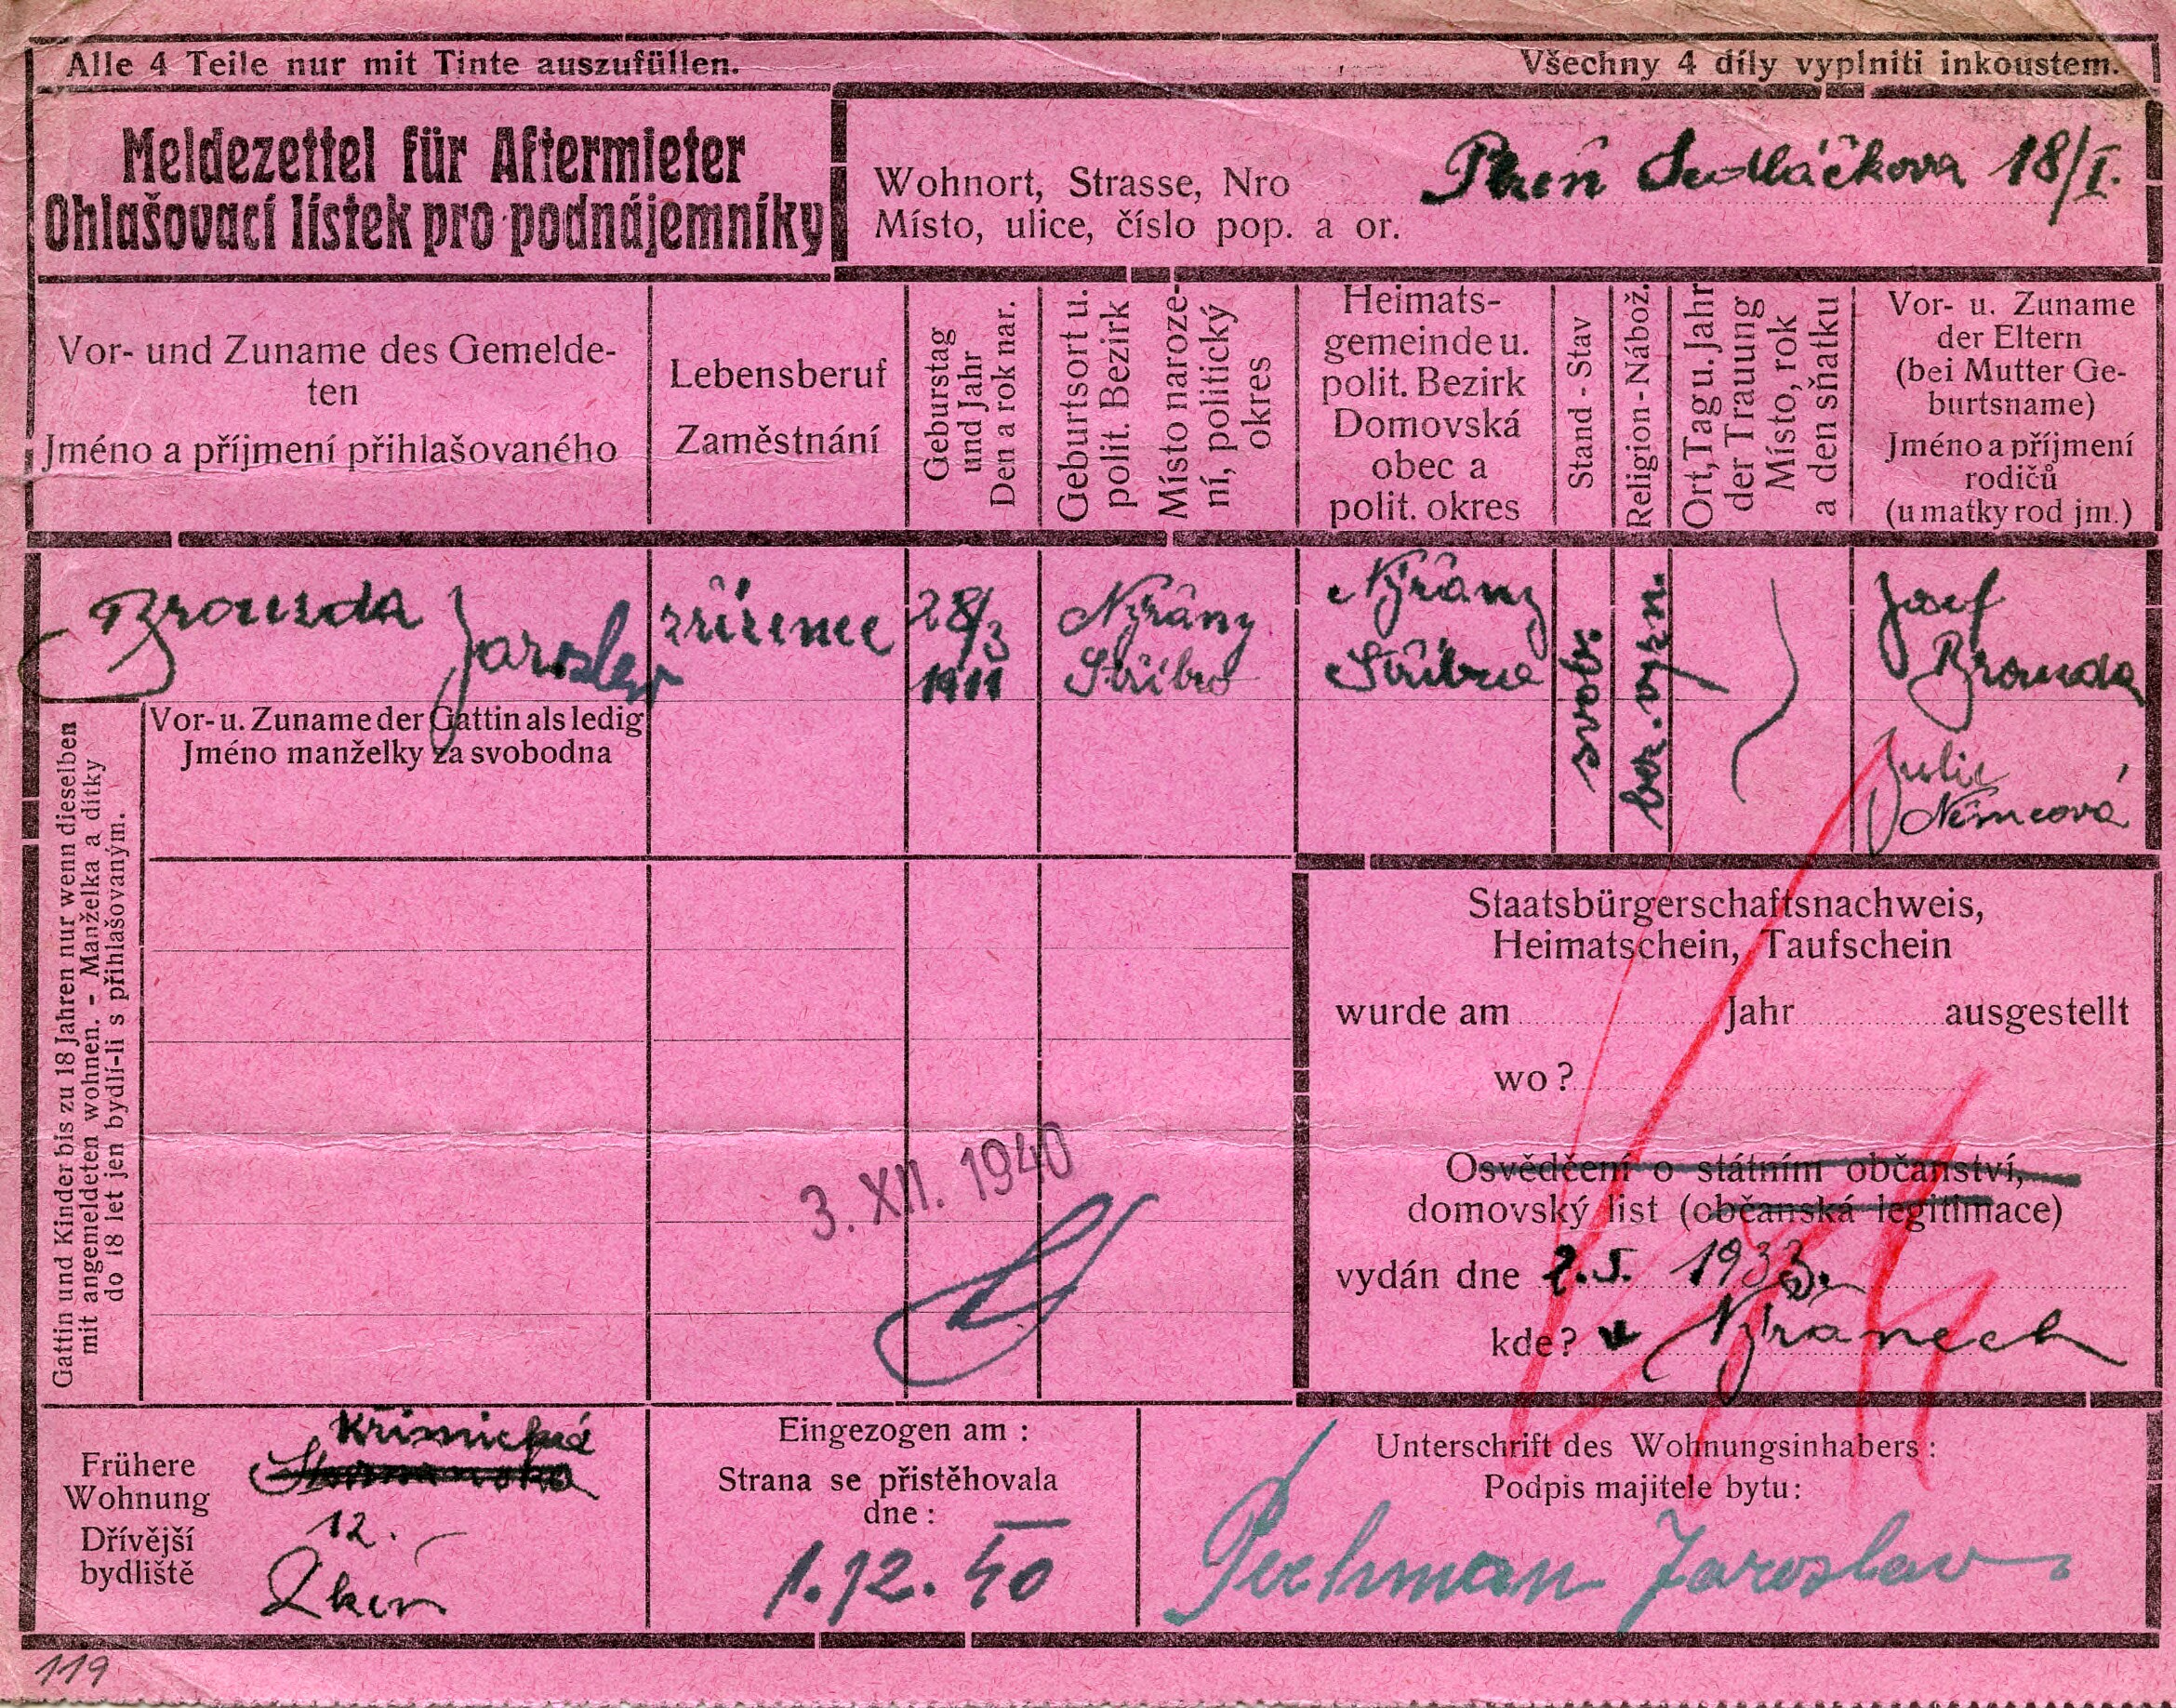 Alle 4 Teile nur mit Tinte auszufüllen.
Všechny 4 díly vyplniti inkoustem.
Meldezettel für Aftermieter
Ohlašovací lístek pro podnájemníky
Wohnort, Strasse, Nro
Místo, ulice, číslo pop. a or.
Plzeň Sedláčkova 18/I.
Vor- und Zuname des Gemelde-
ten
Jméno a příjmení přihlašovaného
Lebensberuf
Zaměstnání
Geburstag
und Jahr
Den a rok nar.
Geburtsort u.
polit. Bezirk
Místo naroze-
ní, politický
okres
Heimats-
gemeinde u.
polit. Bezirk
Domovská
obec a
polit. okres
Stand - Stav
Religion - Nábož.
Ort, Tag u. Jahr
der Trauung
Místo, rok
a den sňatku
Vor- u. Zuname
der Eltern
(bei Mutter Ge-
burtsname)
Jméno a příjmení
rodičů
(u matky rod jm.)
Brouzda Jaroslav
zřízenec
28/3
1911
Nýřany
Stříbro
Nýřany
Stříbro
svob.
bez. vyzn.
Josef
Brouzda
Julie
Němcová
Vor- u. Zuname der Gattin als ledig
Jméno manželky za svobodna
Gattin und Kinder bis zu 18 Jahren nur wenn dieselben
mit angemeldeten wohnen. - Manželka a dítky
do 18 let jen bydlí-li s přihlašovaným.
Staatsbürgerschaftsnachweis,
Heimatschein, Taufschein
wurde am Jahr ausgestellt
wo?
Osvědčení o státním občanství,
domovský list (občanská legitimace)
vydán dne 2.5. 1933.
kde? v Nýřanech
3. XII. 1940
Frühere
Wohnung
Dřívější
bydliště
Křimická
12.
Plzeň
Eingezogen am :
Strana se přistěhovala
dne :
1.12.40
Unterschrift des Wohnungsinhabers :
Podpis majitele bytu :
Pechman Jaroslav
119